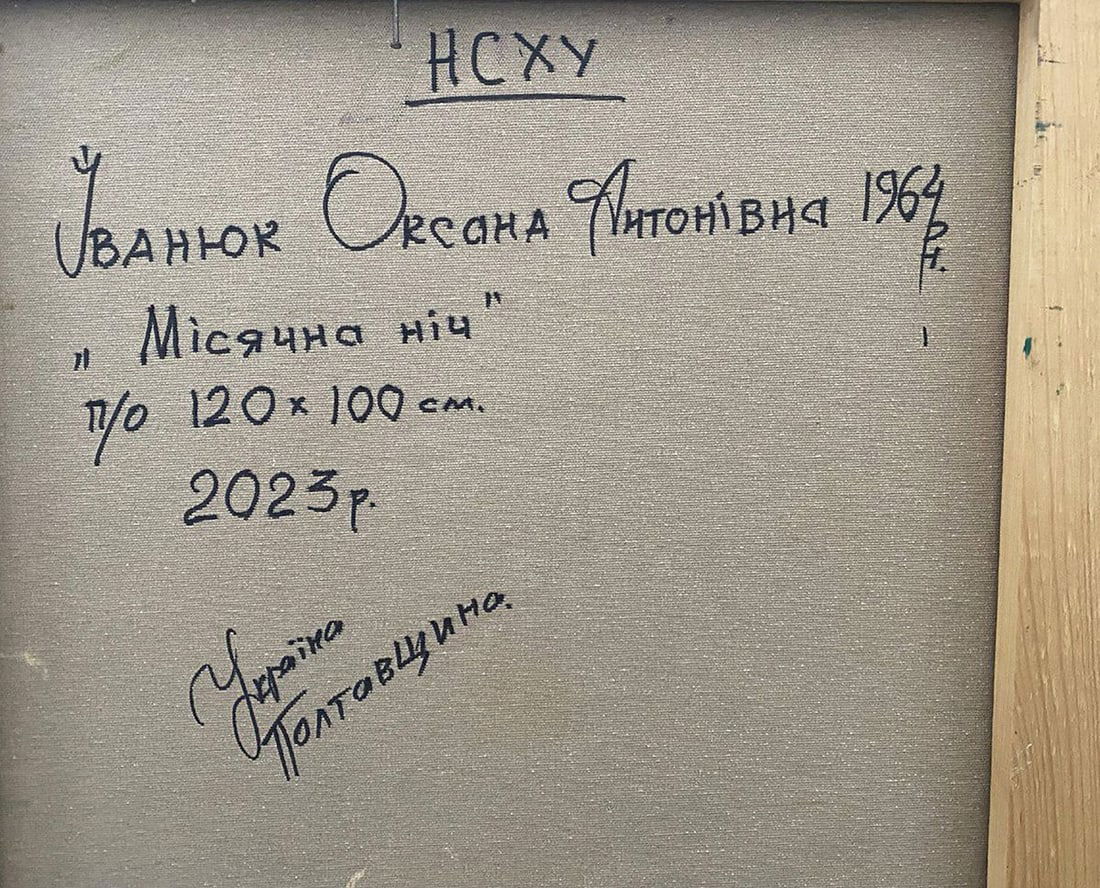 НСХУ
Іванюк Оксана Антонівна 1964 р.н.
„Місячна ніч"
п/о 120 х 100 см.
2023 р.
Україна
Полтавщина.